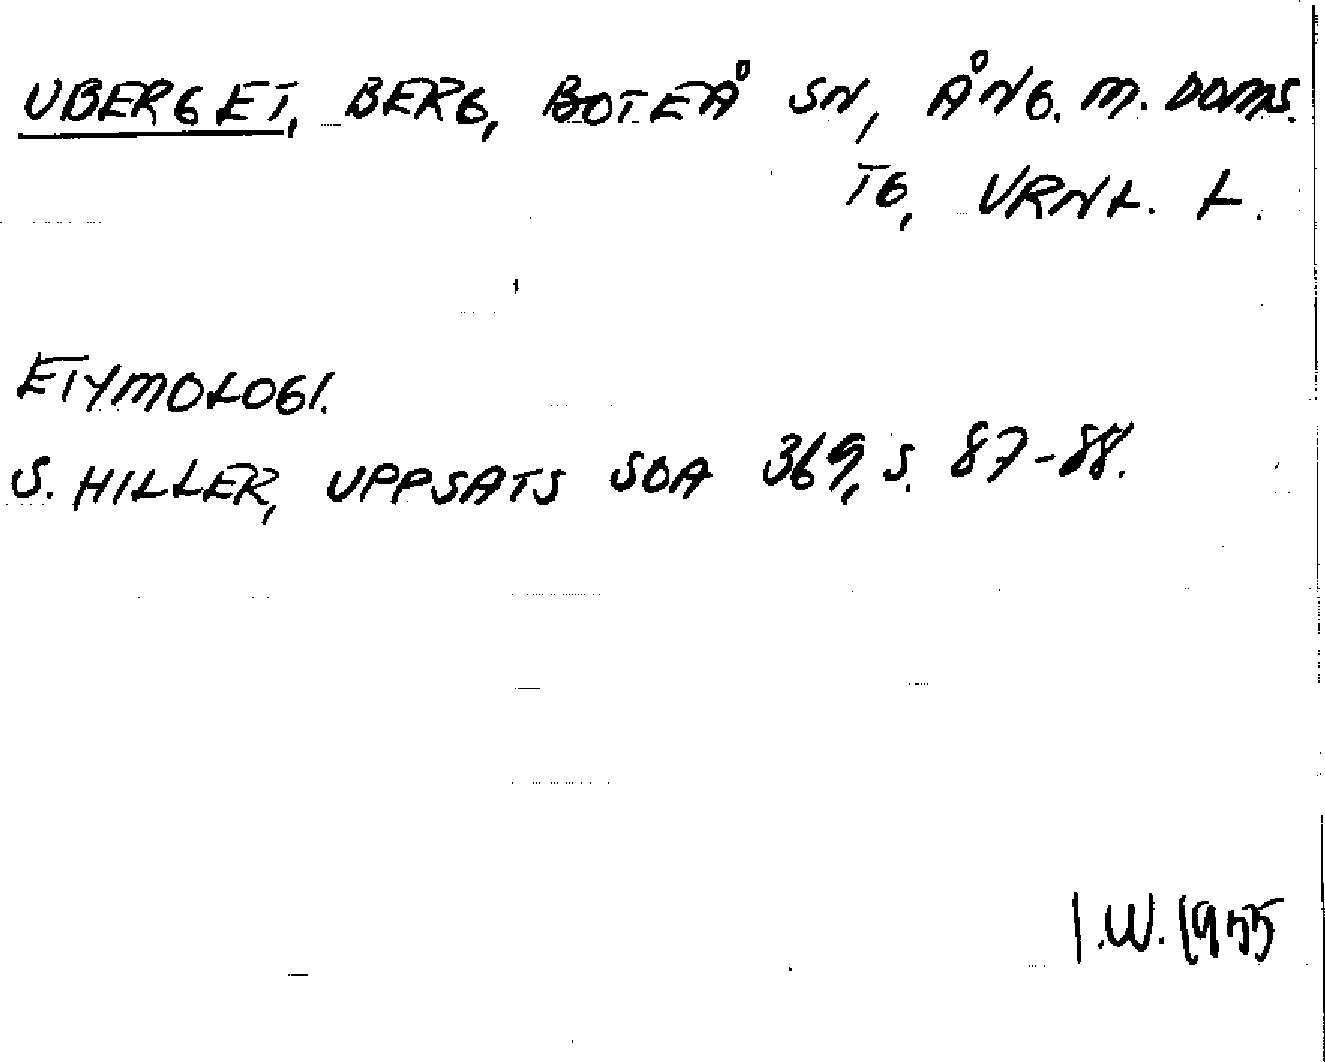 UBERGET, BERG, BOTEÅ SN, ÅNG. M. DOMS.
TG, VRNL. L.
ETYMOLOGI.
S. HILLER, UPPSATS SOA 369, S. 87-88.
I.W. 1955